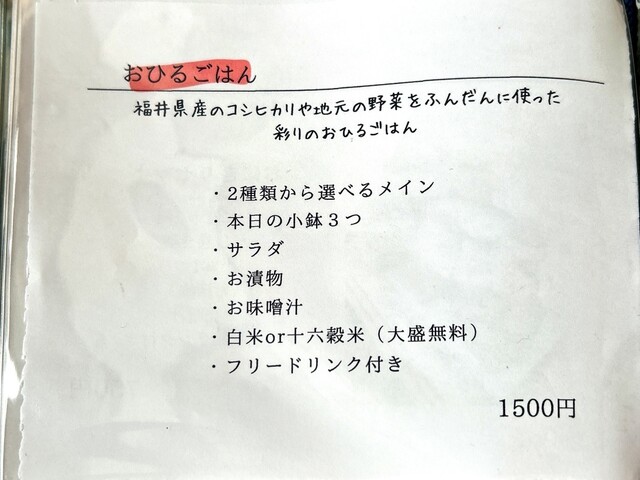 おひるごはん
福井県産のコシヒカリや地元の野菜をふんだんに使った
彩りのおひるごはん
・2種類から選べるメイン
・本日の小鉢３つ
・サラダ
・お漬物
・お味噌汁
・白米or十六穀米（大盛無料）
・フリードリンク付き
1500円